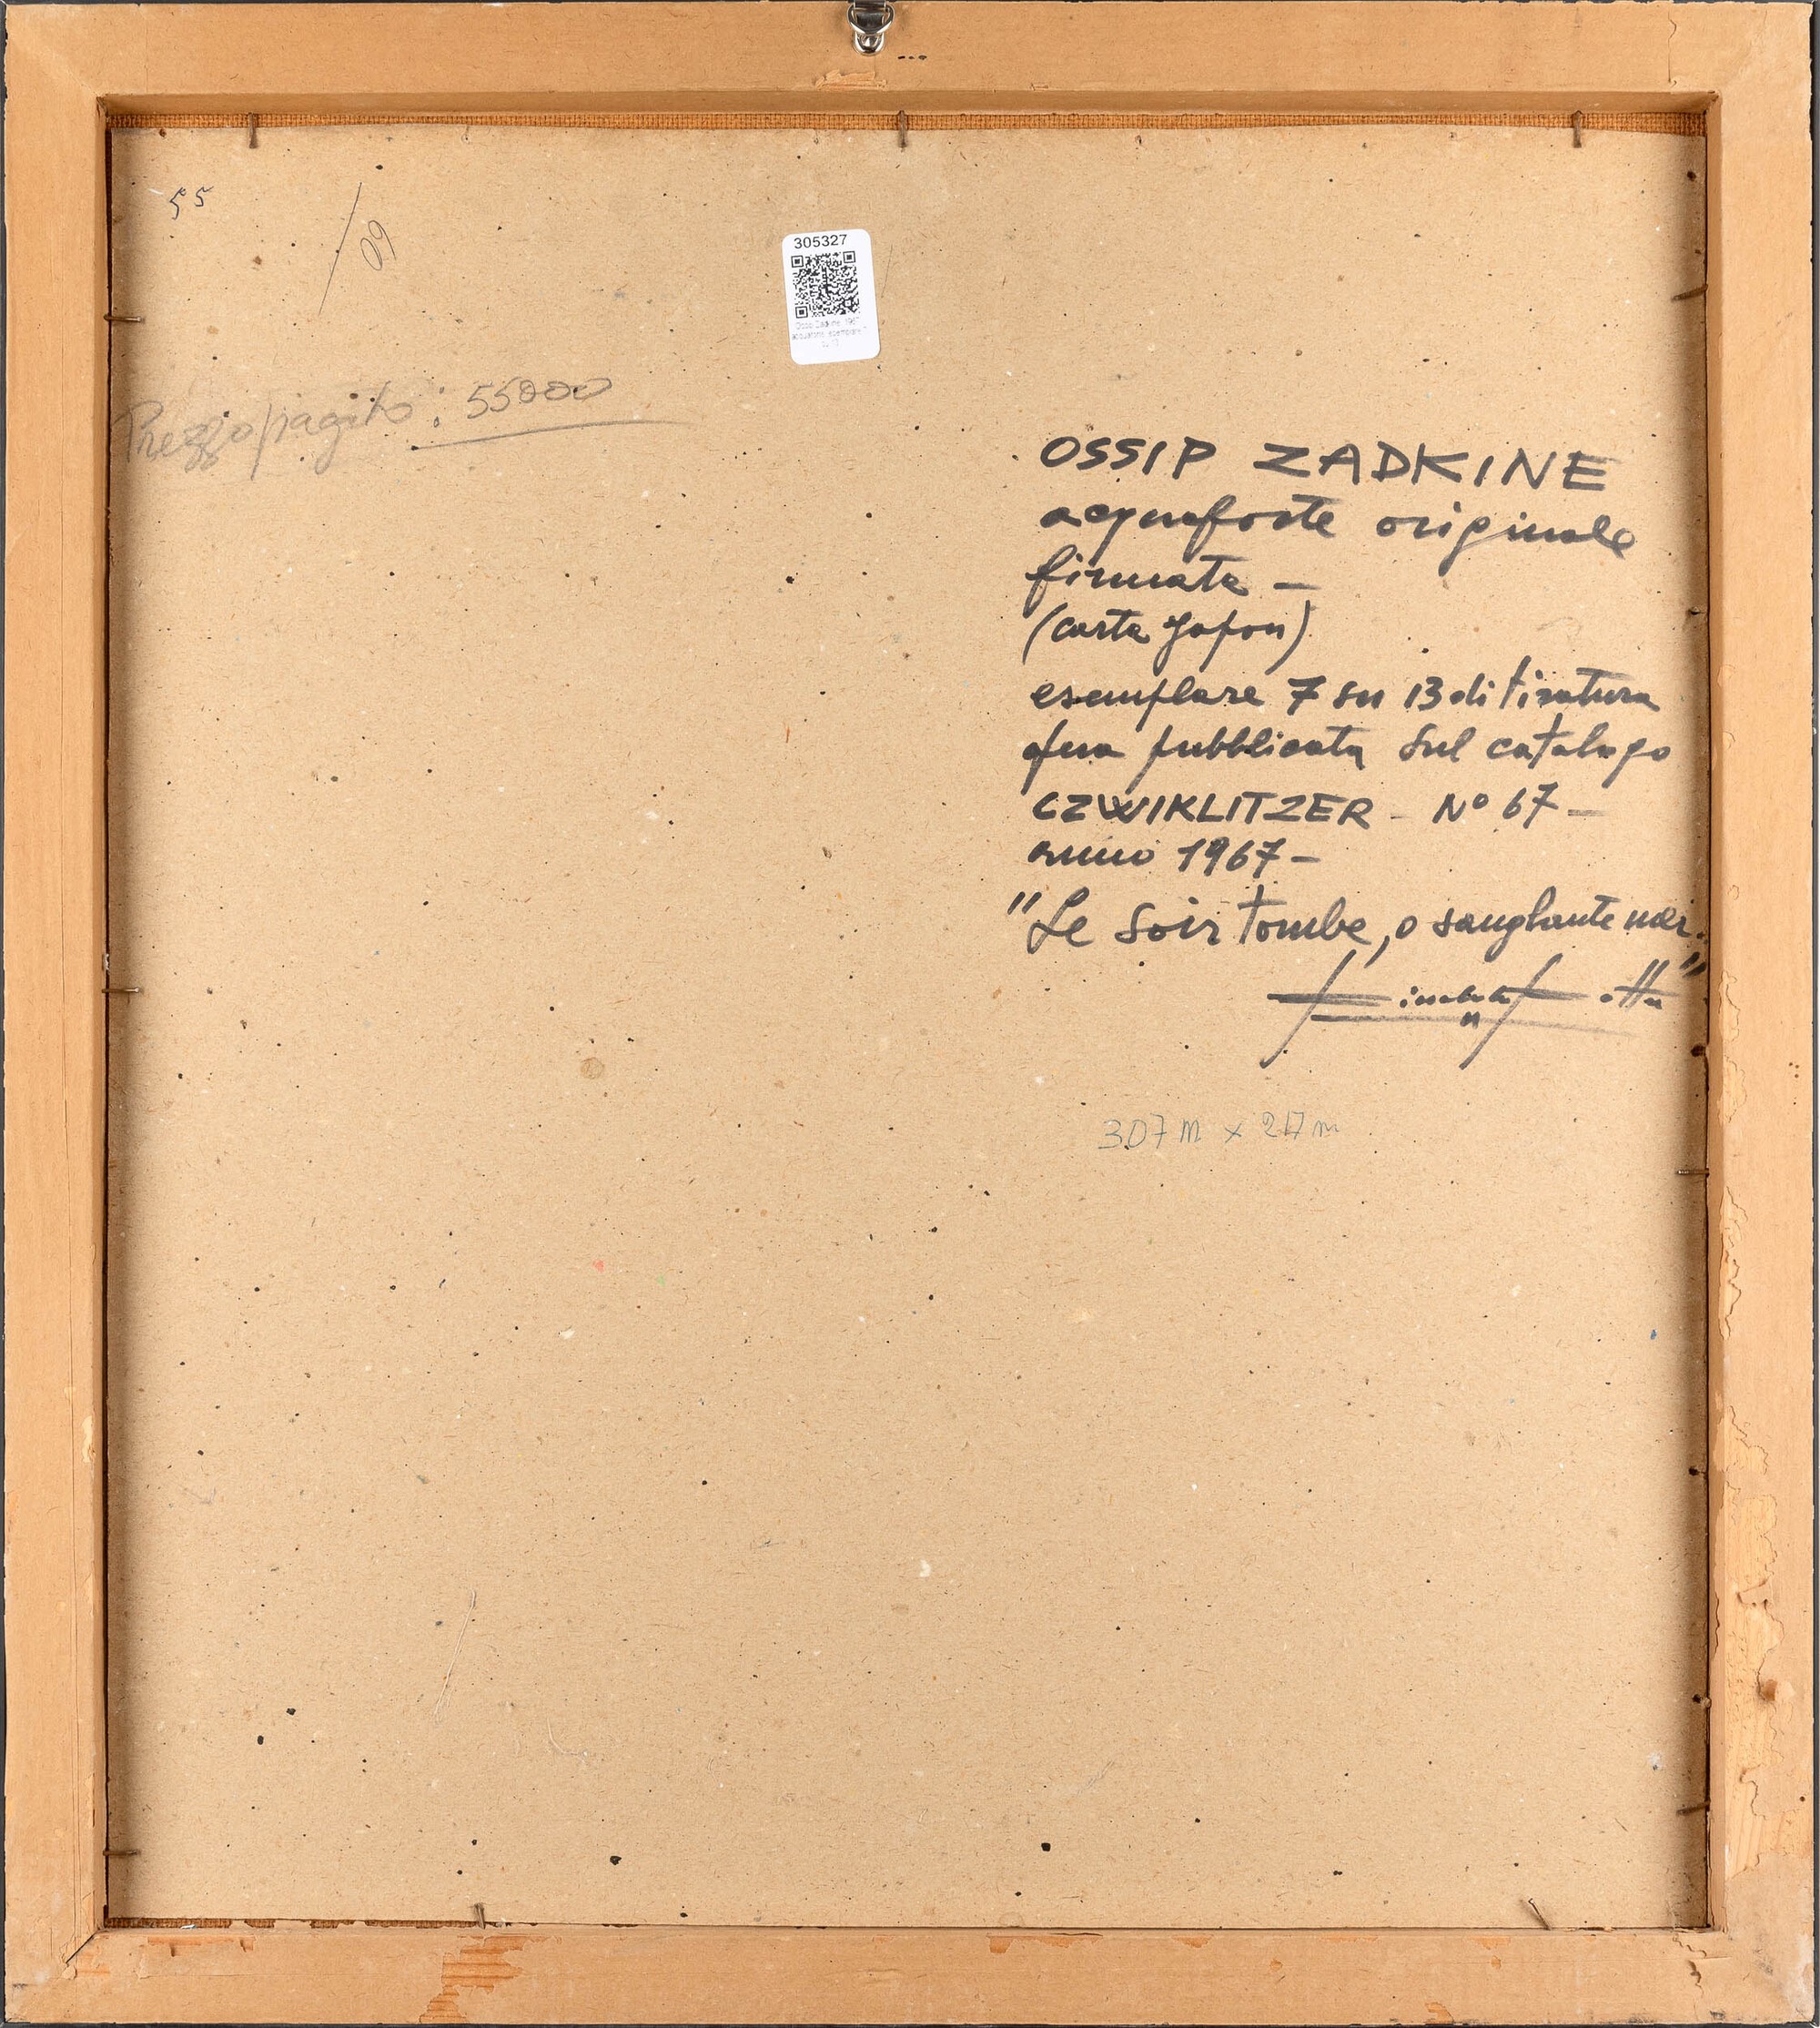 55
60
305327
Prezzo pagato: 55000
OSSIP ZADKINE
acquaforte originale
firmata –
(carta Japon)
esemplare 7 su 13 di tiratura
opera pubblicata sul catalogo
CZWIKLITZER – Nº 67 –
anno 1967 –
"Le soir tombe, o sanglante mer."
307 m x 217 m